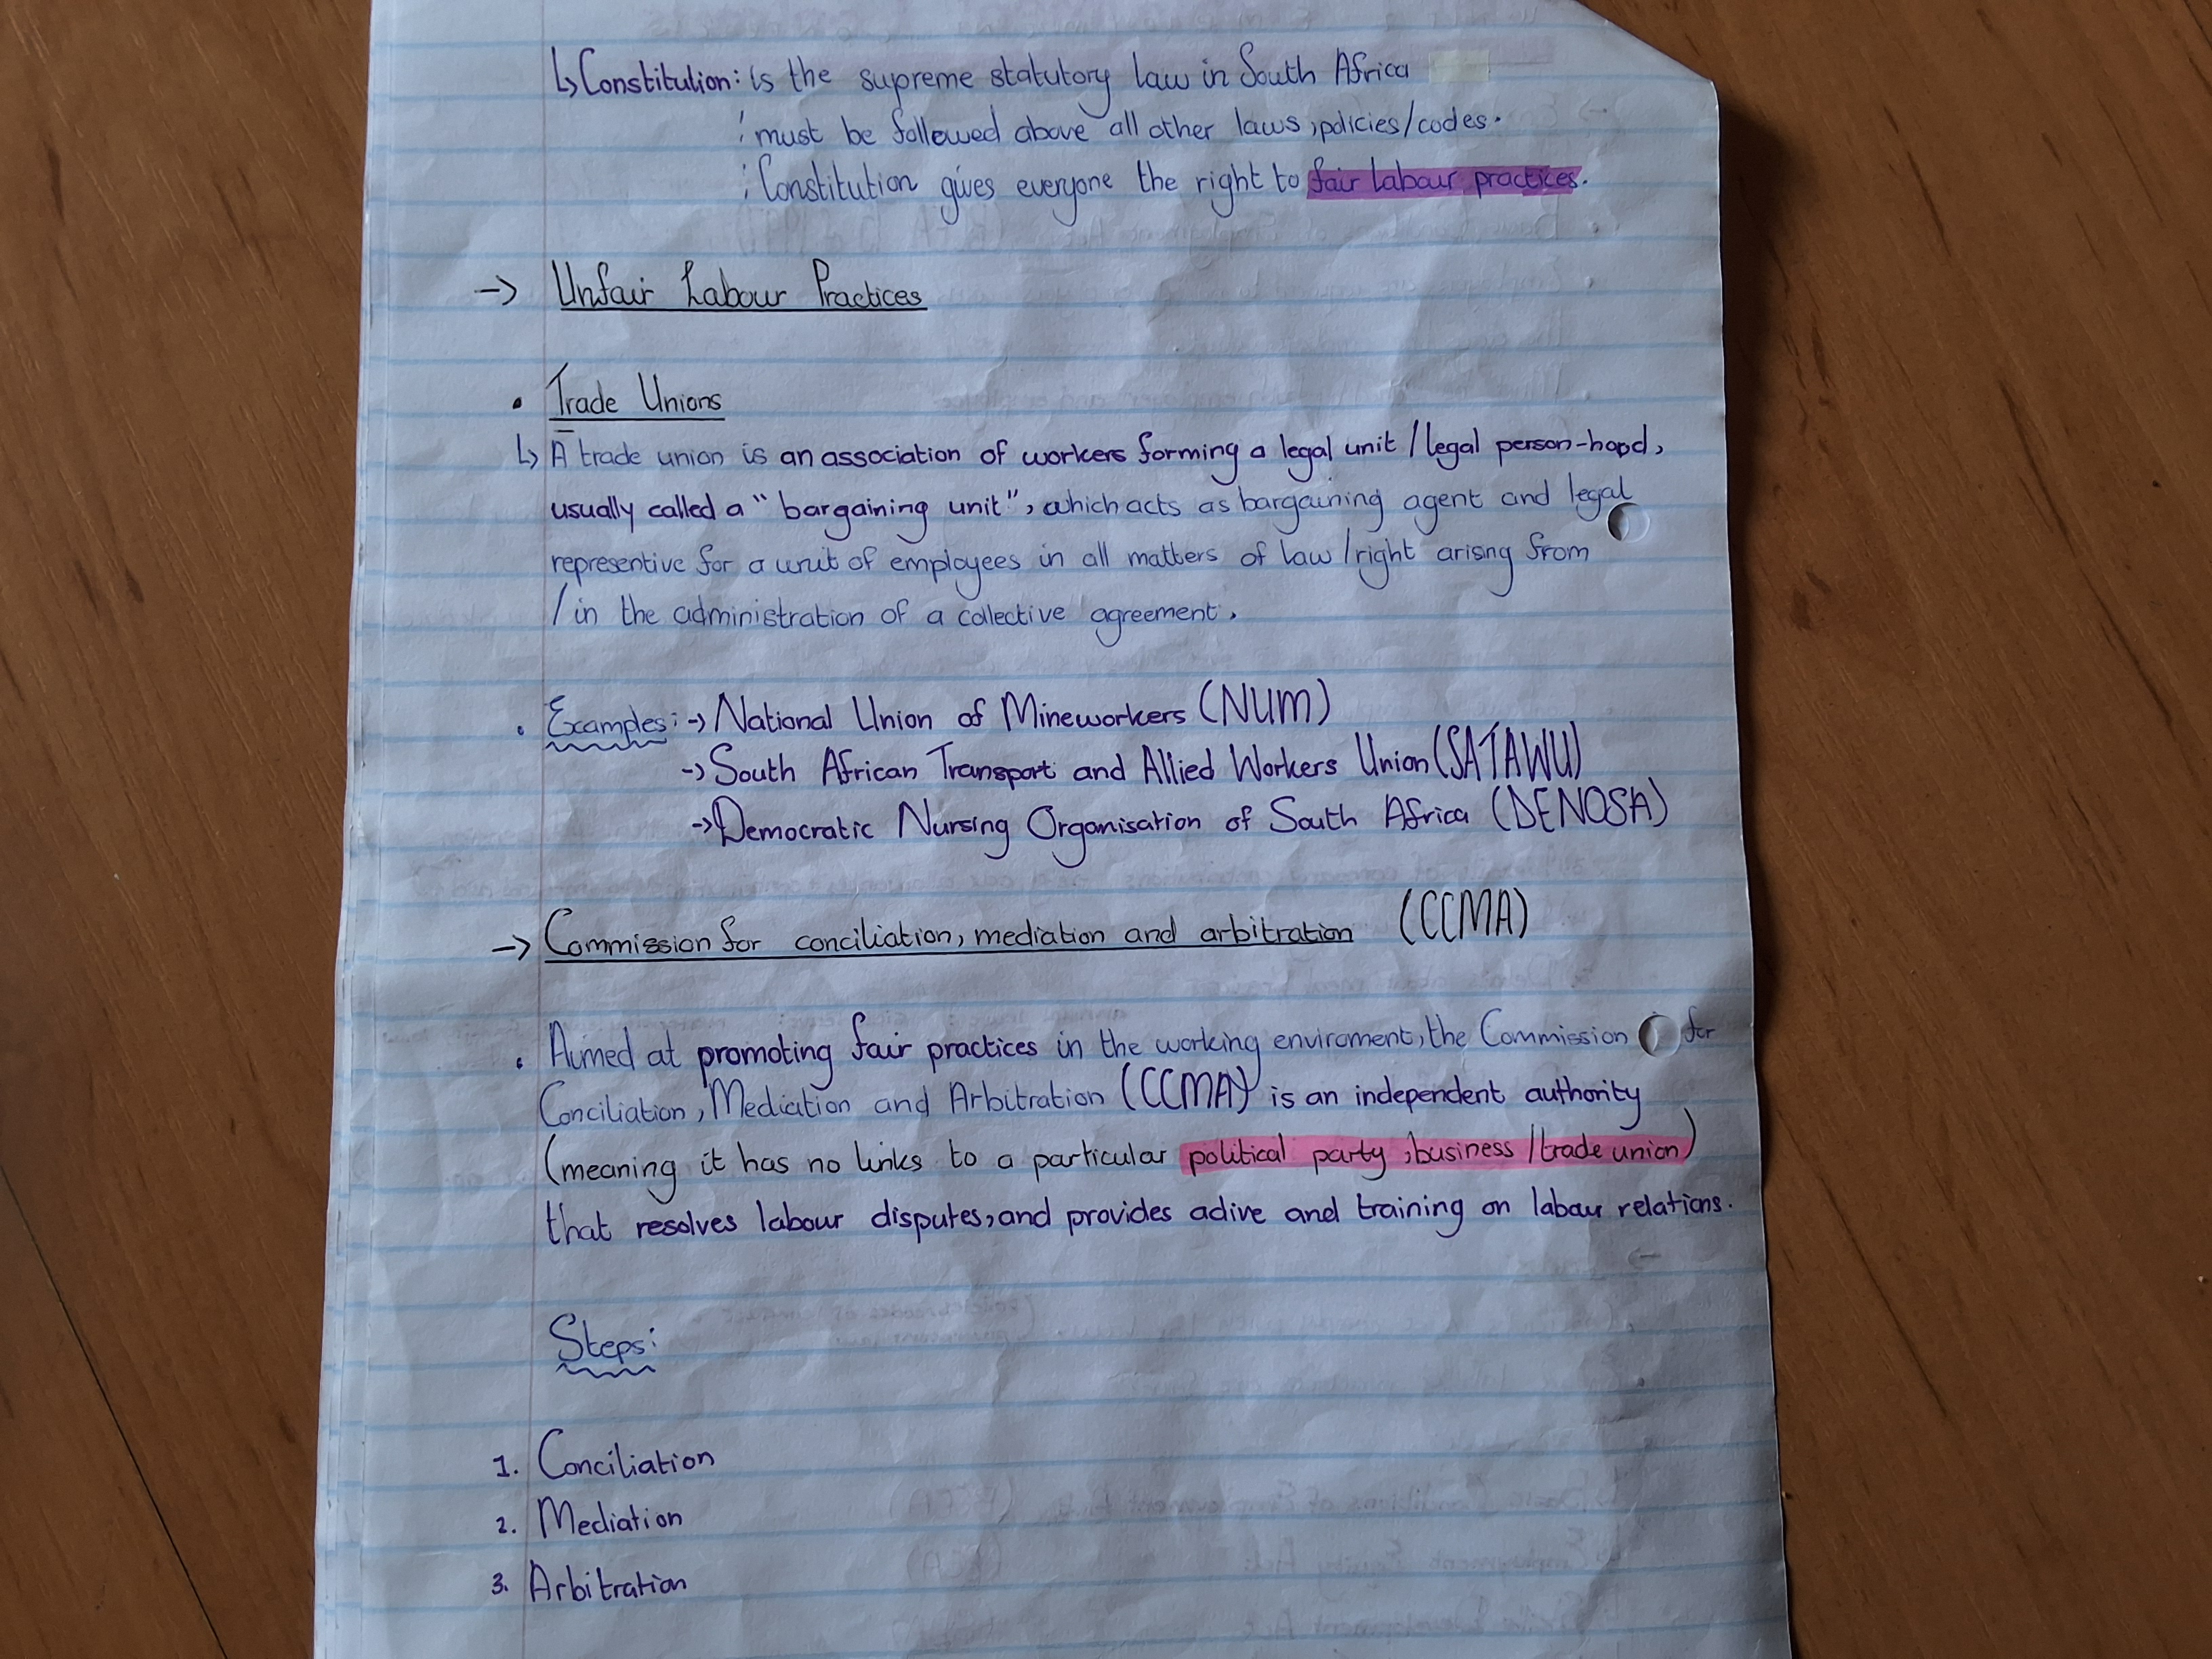 ↳ Constitution: is the supreme statutory law in South Africa
: must be followed above all other laws, policies/codes.
: Constitution gives everyone the right to fair labour practices.
-> Unfair Labour Practices
• Trade Unions
↳ A trade union is an association of workers forming a legal unit / legal person-hood,
usually called a "bargaining unit", which acts as bargaining agent and legal
representive for a unit of employees in all matters of law/right arising from
/in the administration of a collective agreement.
• Examples: -> National Union of Mineworkers (NUM)
-> South African Transport and Allied Workers Union (SATAWU)
-> Democratic Nursing Organisation of South Africa (DENOSA)
-> Commission for conciliation, mediation and arbitration (CCMA)
• Aimed at promoting fair practices in the working enviroment, the Commission for
Conciliation, Mediation and Arbitration (CCMA) is an independent authority
(meaning it has no links to a particular political party, business/trade union)
that resolves labour disputes, and provides adive and training on labour relations.
Steps:
1. Conciliation
2. Mediation
3. Arbitration